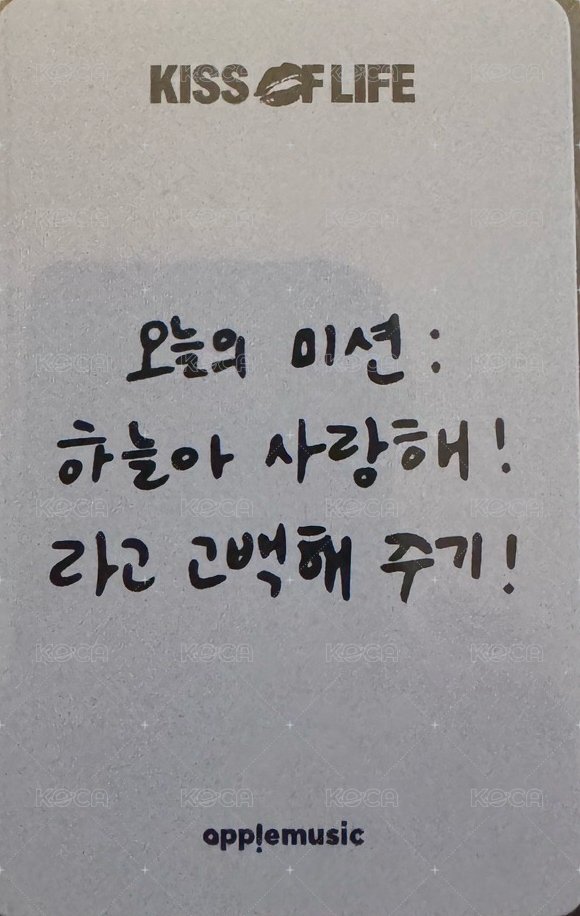 KISS OF LIFE
오늘의 미션:
하늘아 사랑해!
라고 고백해 주기!
app!emusic
KOCA